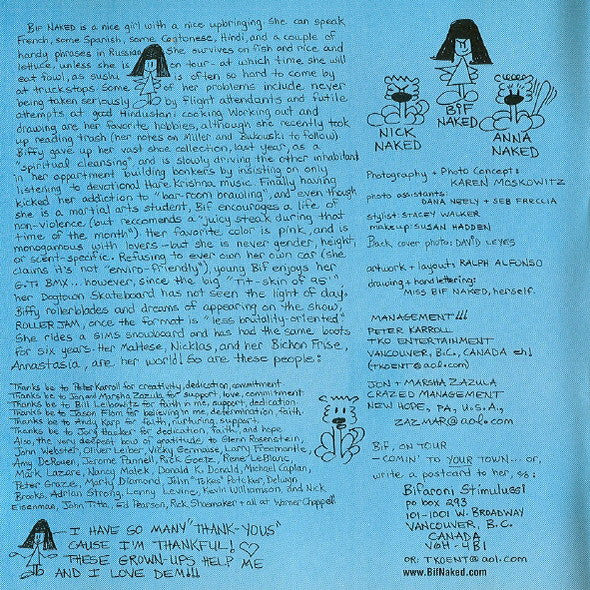 BIF NAKED is a nice girl with a nice upbringing. she can speak
French, some Spanish, some Cantonese, Hindi, and a couple of
handy phrases in Russian. She survives on fish and rice and
lettuce, unless she is on tour - at which time she will
eat fowl, as sushi is often so hard to come by
at truckstops. Some of her problems include never
being taken seriously by flight attendants and futile
attempts at good Hindustani cooking. Working out and
drawing are her favorite hobbies, although she recently took
up reading trash (her notes on Miller and Bukouski to follow)
Biffy gave up her vast shoe collection, last year, as a
"spiritual cleansing" and is slowly driving the other inhabitant
in her appartment building bonkers by insisting on only
listening to devotional Hare Krishna music. Finally having
kicked her addiction to "bar-room brawling", and even though
she is a martial arts student, Bif encourages a life of
non-violence (but reccomends a "juicy steak during that
time of the month") Her favorite color is pink, and is
monogamous with lovers - but she is never gender, height,
or scent-specific. Refusing to ever own her own car (she
claims it's not "enviro-friendly"), young Bif enjoys her
G.T. BMX... however, since the big "Tit-skin of 95"
her Dogtown Skateboard has not seen the light of day.
Biffy rollerblades and dreams of appearing on the show,
ROLLER JAM, once the format is "less brutality-oriented"
She rides a SIMS snowboard and has had the same boots
for six years. Her Maltese, Nicklas, and her Bichon Frise,
Annastasia, are her world! So are these people:
Thanks be to Peter Karroll for creativity, dedication, commitment
Thanks be to Jon and Marsha Zazula for support, love, commitment
Thanks be to Bill Leibowitz for faith in me, support, dedication
Thanks be to Jason Flom for believing in me, determination, faith
Thanks be to Andy Karp for faith, nurturing, support
Thanks be to Jorg Hacker for dedication, faith, and hope
Also, the very deepest bow of gratitude to Glenn Rosenstein,
John Webster, Oliver Leiber, Vicky Germaise, Larry Freemantle,
Amy DeRouen, Jerome Fannell, Rick Goetz, Rene LeBlanc,
Mark Lazare, Nancy Malek, Donald K. Donald, Michael Caplan,
Peter Grazes, Marty Diamond, John "Tokes" Potoker, Delwyn
Brooks, Adrian Strong, Lenny Levine, Kevin Williamson, and Nick
Eisenman, John Titta, Ed Pearson, Rick Shoemaker + all at Warner Chappell
I HAVE SO MANY "THANK-YOUS"
CAUSE I'M THANKFUL!
THESE GROWN-UPS HELP ME
AND I LOVE DEM!!!
NICK
NAKED
BIF
NAKED
ANNA
NAKED
Photography + Photo Concept:
KAREN MOSKOWITZ
photo assistants:
DANA NEELY + SEB FRECCIA
stylist: STACEY WALKER
makeup: SUSAN HADDEN
Back cover photo: DAVID LEYES
artwork + layout: RALPH ALFONSO
drawing + hand lettering:
MISS BIF NAKED, herself.
MANAGEMENT!!!
PETER KARROLL
TKO ENTERTAINMENT
VANCOUVER, B.C., CANADA eh!
(TKOENT@aol.com)
JON + MARSHA ZAZULA
CRAZED MANAGEMENT
NEW HOPE, PA, U.S.A.,
ZAZMAR@aol.com
BIF, ON TOUR
- COMIN' TO YOUR TOWN... or,
write a postcard to her, @:
Bifaroni Stimulussi
po box 293
101-1001 W. BROADWAY
VANCOUVER, B.C.
CANADA
V6H-4B1
OR: TKOENT@aol.com
www.BifNaked.com